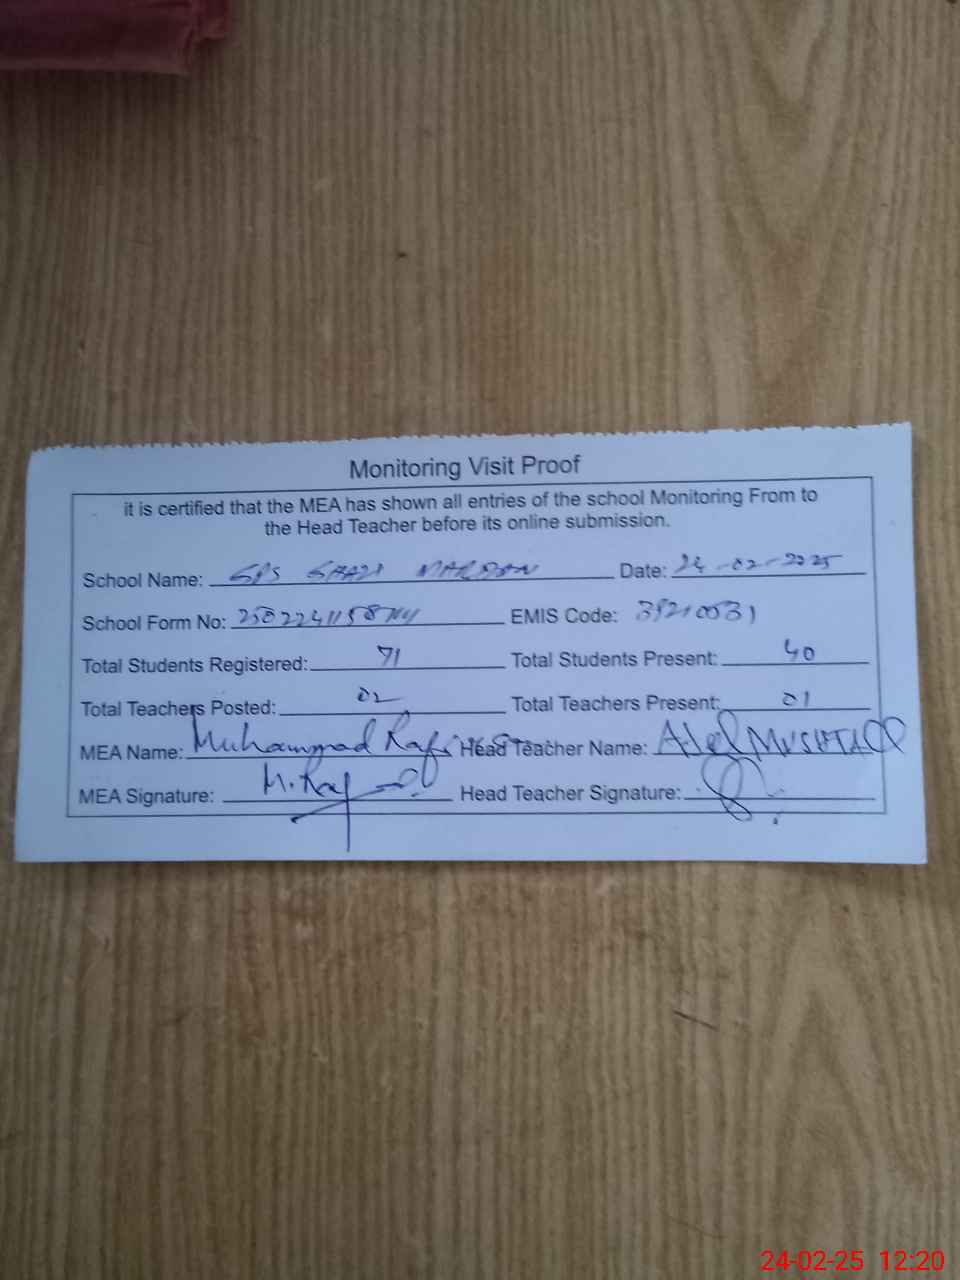 Monitoring Visit Proof
it is certified that the MEA has shown all entries of the school Monitoring From to
the Head Teacher before its online submission.
School Name: GPS Date: 24-02-2025
School Form No: EMIS Code: 39210031
Total Students Registered: 71 Total Students Present: 40
Total Teachers Posted: 02 Total Teachers Present: 01
MEA Name: Muhammad Head Teacher Name: MUSHTAQ
MEA Signature: Head Teacher Signature:
24-02-25 12:20